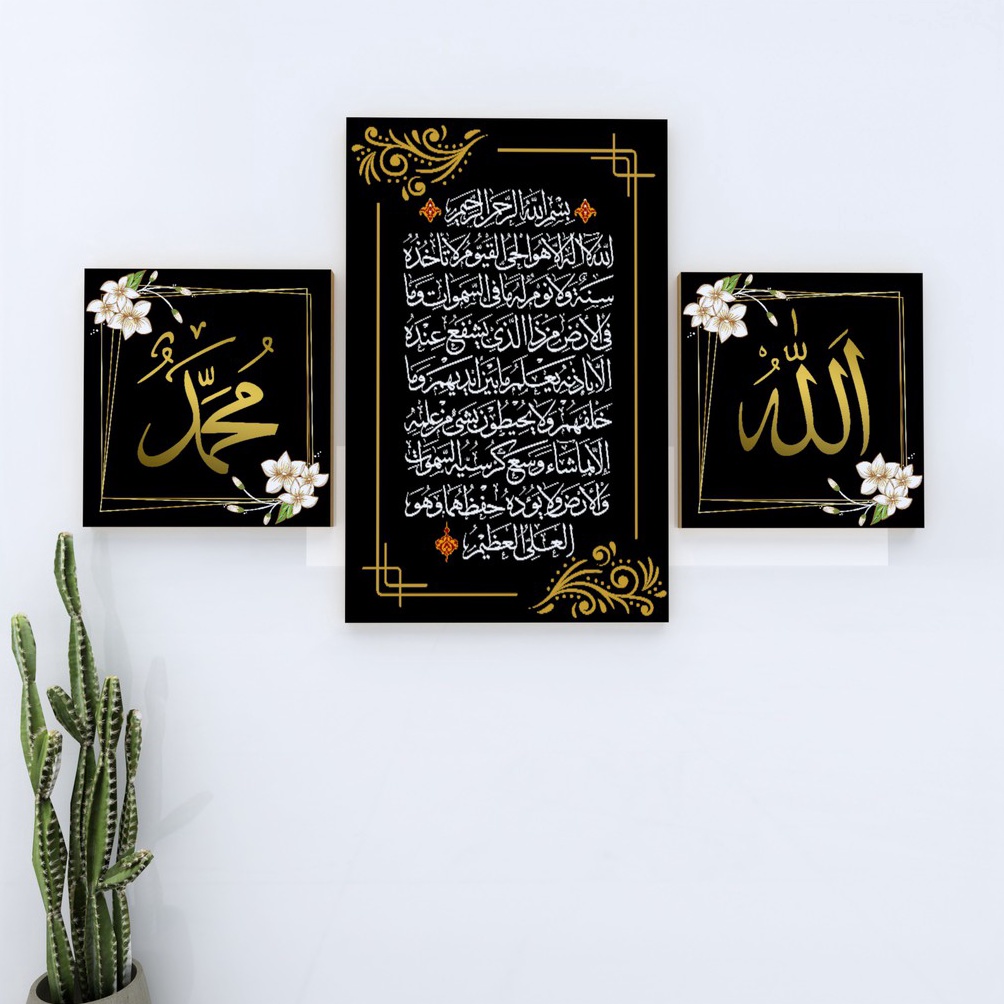 الله
بسم الله الرحمن الرحيم
الله لا اله الا هو الحي القيوم لا تأخذه
سنة ولا نوم له ما في السموات وما
في الارض من ذا الذي يشفع عنده
الا باذنه يعلم ما بين ايديهم وما
خلفهم ولا يحيطون بشئ من علمه
الا بما شاء وسع كرسيه السموات
والارض ولا يؤده حفظهما وهو
العلي العظيم
محمد